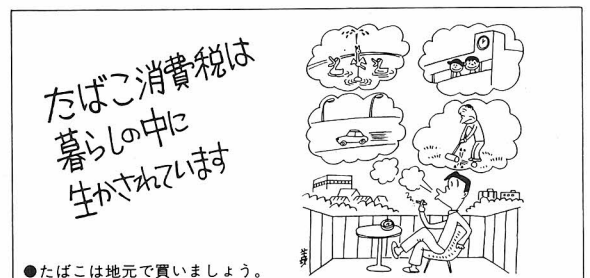 たばこ消費税は
暮らしの中に
生かされています
●たばこは地元で買いましょう。